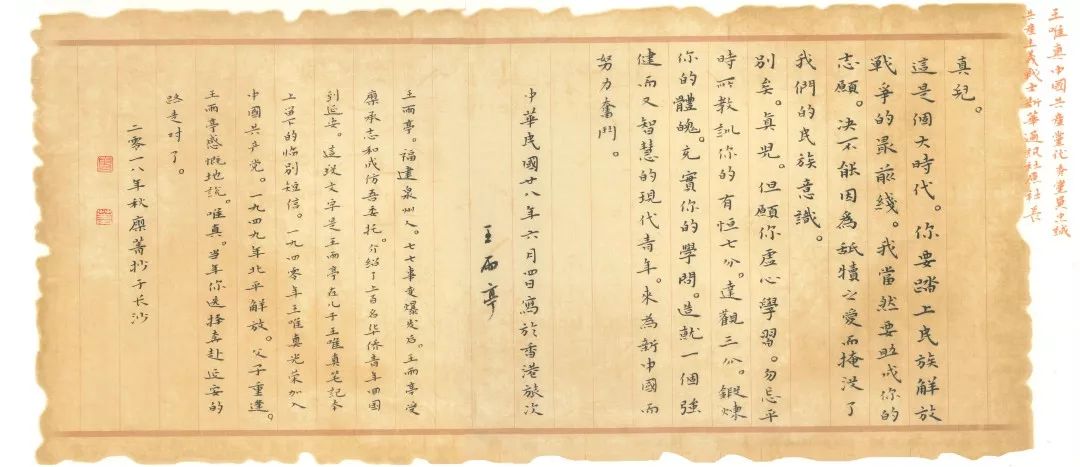 王唯真中國共產黨优秀黨員忠誠
共產主義戰士新華通訊社原社長
真兒。
這是個大時代。你要踏上民族解放
戰爭的最前綫。我當然要助成你的
志願。决不能因為舐犢之愛而掩没了
我們的民族意識。
別矣。真兒。但願你虛心學習。勿忘平
時所教訓你的有恒七分。達觀三分。鍛煉
你的體魄。充實你的學問。造就一個強
健而又智慧的現代青年。來為新中國而
努力奮鬥。
中華民國廿八年六月四日寫於香港旅次
王雨亭
王雨亭。福建泉州人。七七事变爆发后。王雨亭受
廖承志和成仿吾委托。介绍了上百名华侨青年回国
到延安。這段文字是王雨亭在儿子王唯真笔記本
上留下的临别短信。一九四零年王唯真光荣加入
中國共产党。一九四九年北平解放。父子重逢。
王雨亭感慨地說。唯真。当年你选择奔赴延安的
路走对了。
二零一八年秋廖菁抄于长沙